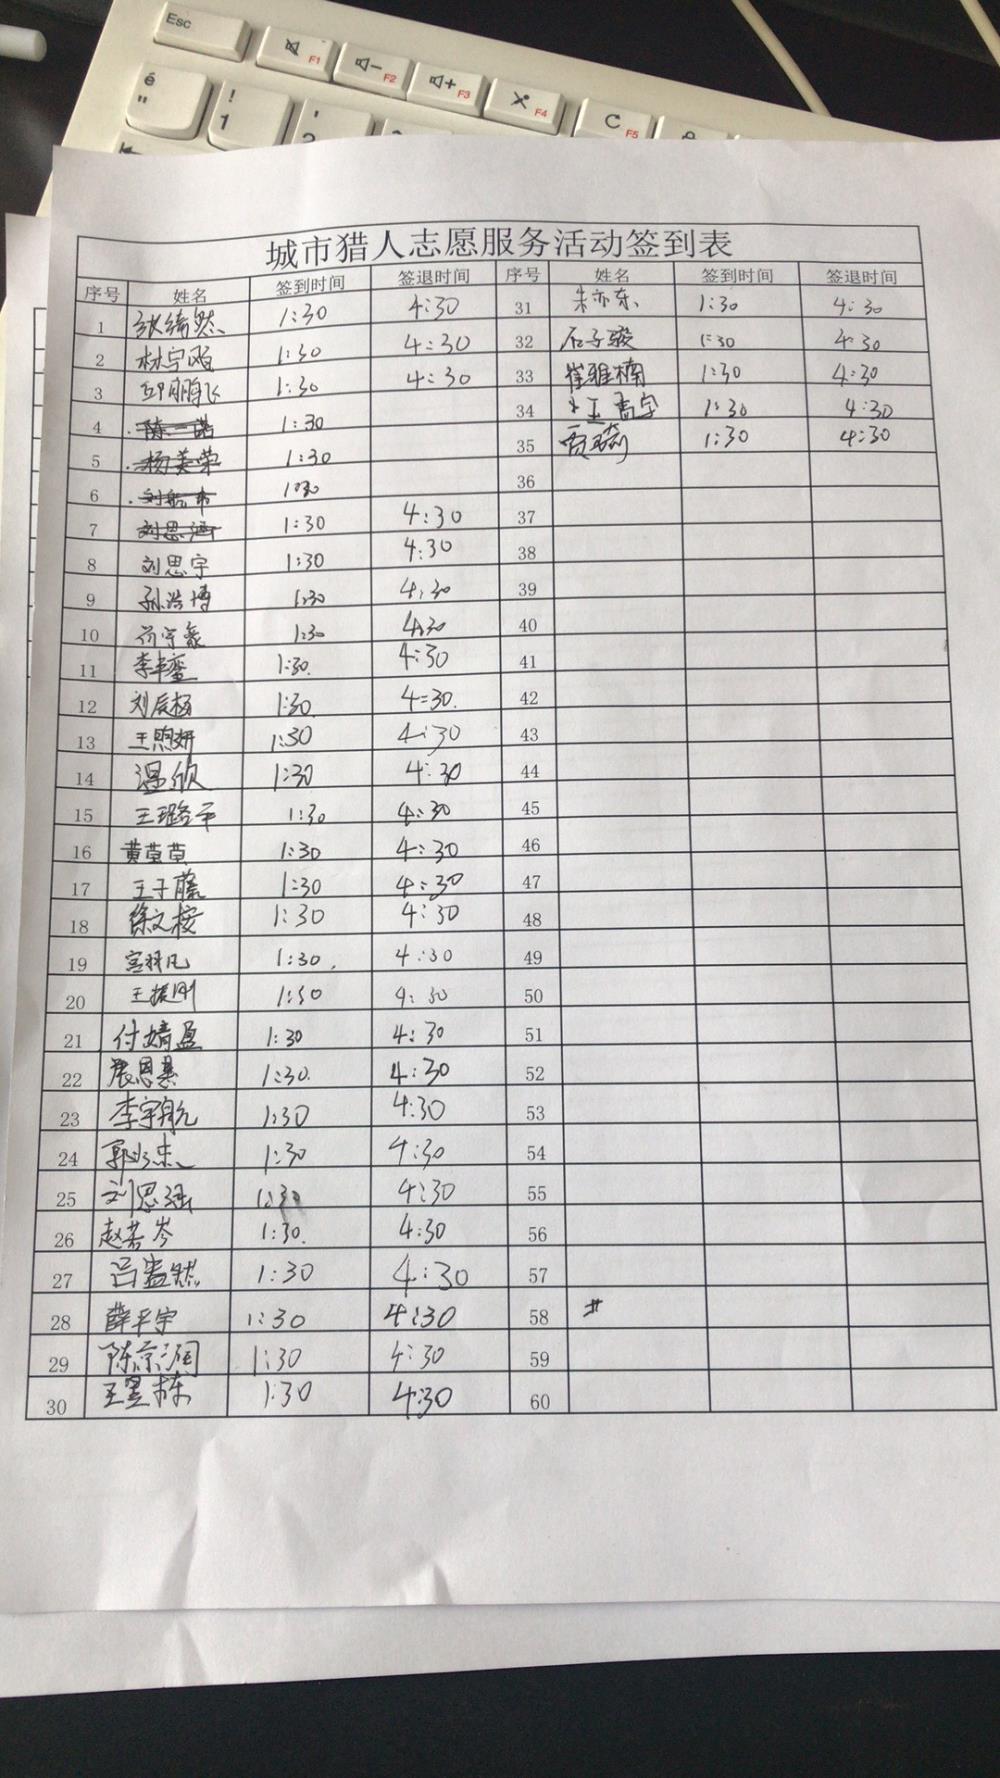 Esc
F1
F2
F3
F4
C F5
é
"
!
1
城市猎人志愿服务活动签到表
序号 姓名 签到时间 签退时间 序号 姓名 签到时间 签退时间
1 1:30 4:30 31 朱亦东 1:30 4:30
2 1:30 4:30 32 石子骏 1:30 4:30
3 邱鹏飞 1:30 4:30 33 崔雅楠 1:30 4:30
4 陈一诺 1:30 34 1:30 4:30
5 杨美荣 1:30 35 1:30 4:30
6 1:30 36
7 1:30 4:30 37
8 刘思宇 1:30 4:30 38
9 孙浩博 1:30 4:30 39
10 1:30 4:30 40
11 1:30 4:30 41
12 刘辰杨 1:30 4:30 42
13 王煦妍 1:30 4:30 43
14 温欣 1:30 4:30 44
15 王璐平 1:30 4:30 45
16 1:30 4:30 46
17 王子藤 1:30 4:30 47
18 徐文桉 1:30 4:30 48
19 1:30 4:30 49
20 王振刚 1:30 4:30 50
21 付婧盈 1:30 4:30 51
22 1:30 4:30 52
23 李宇航 1:30 4:30 53
24 1:30 4:30 54
25 刘思涵 1:30 4:30 55
26 赵若岑 1:30 4:30 56
27 吕孟然 1:30 4:30 57
28 薛平宇 1:30 4:30 58 #
29 陈京润 1:30 4:30 59
30 王昱栋 1:30 4:30 60